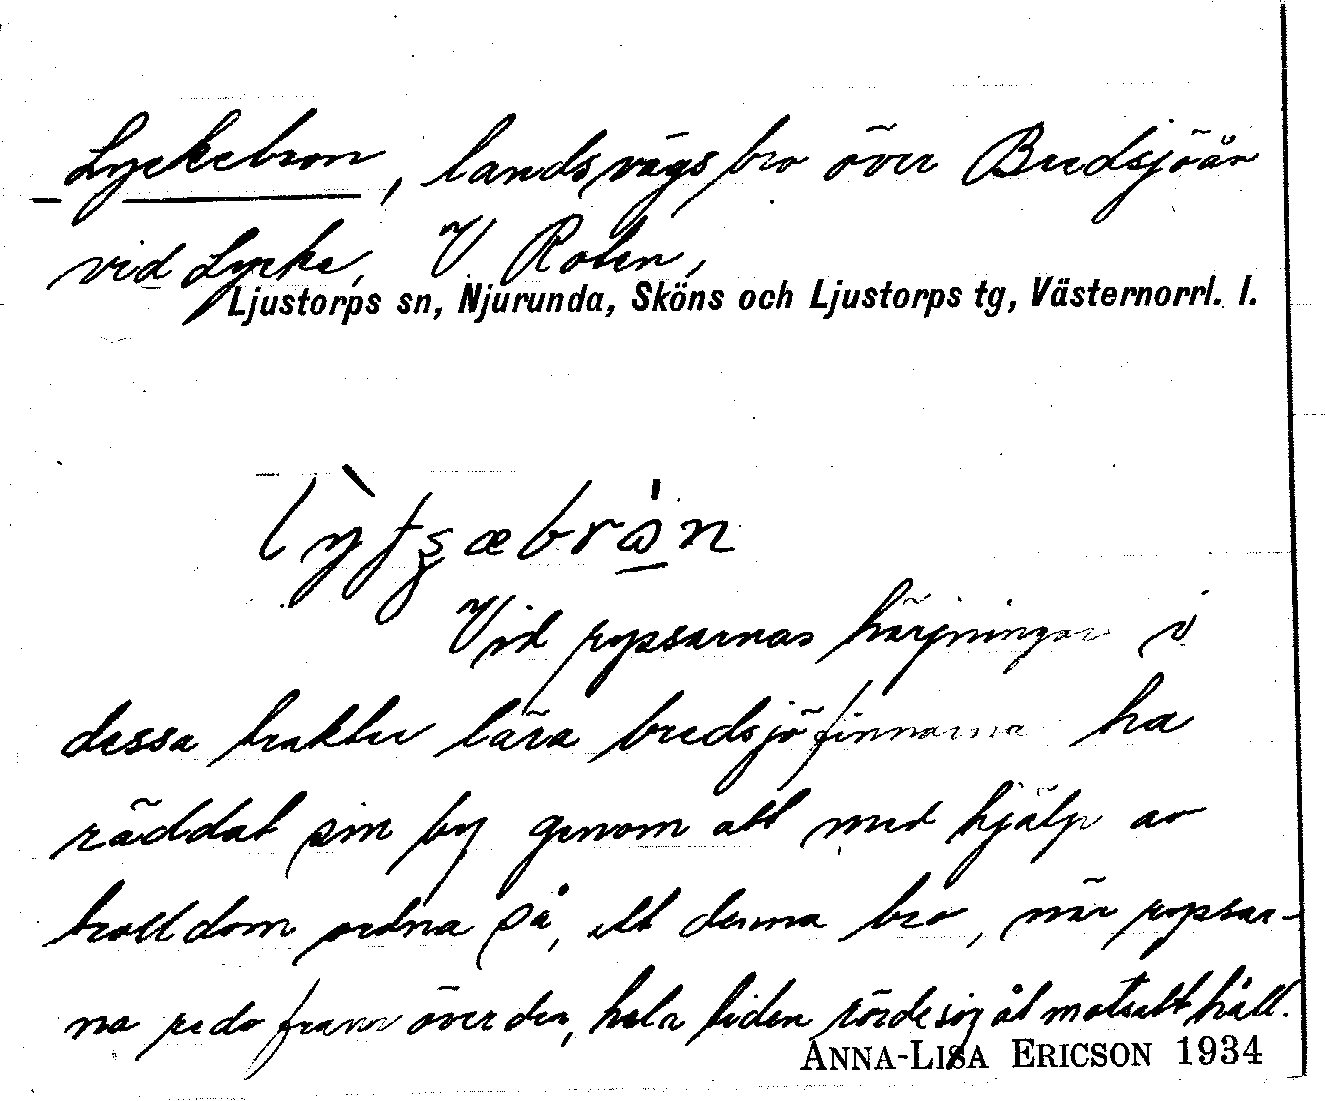 Lyckebron, landsvägsbro över Bredsjöån
vid Lycke, V Roten,
Ljustorps sn, Njurunda, Sköns och Ljustorps tg, Västernorrl. l.
Vid ryssarnas härjningar i
dessa trakter lära bredsjöfinnarna ha
räddat sin by genom att med hjälp av
trolldom ordna så, att denna bro, när ryssar-
na redo fram över den, hela tiden rörde sig åt motsatt håll.
ANNA-LISA ERICSON 1934